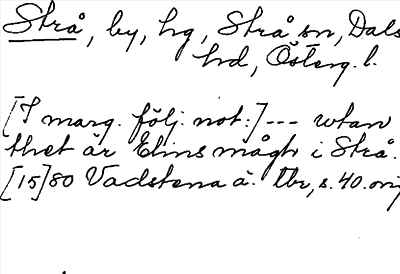 Strå, by, hg, Strå sn, Dals
hd, Österg. l.
[I marg. följ. not:] --- wtan
thet är Elins mågh i Strå.
[15]80 Vadstena ä. tbr, s. 40. ori